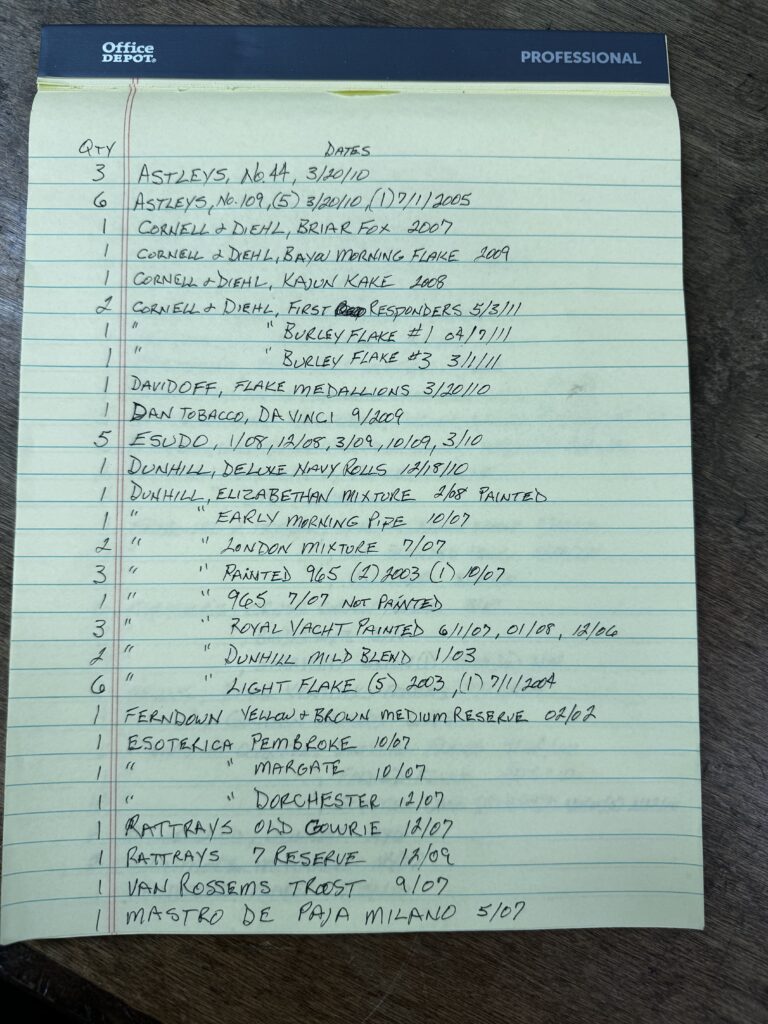 Office DEPOT. PROFESSIONAL
QTY DATES
3 ASTLEYS, No. 44, 3/20/10
6 ASTLEYS, No. 109, (5) 3/20/10, (1) 7/1/2005
1 CORNELL & DIEHL, BRIAR FOX 2007
1 CORNELL & DIEHL, BAYOU MORNING FLAKE 2009
1 CORNELL & DIEHL, KAJUN KAKE 2008
2 CORNELL & DIEHL, FIRST RESPONDERS 5/3/11
1 " " BURLEY FLAKE #1 04/7/11
1 " " BURLEY FLAKE #3 3/1/11
1 DAVIDOFF, FLAKE MEDALLIONS 3/20/10
1 DAN TOBACCO, DA VINCI 9/2009
5 ESUDO, 1/08, 12/08, 3/09, 10/09, 3/10
1 DUNHILL, DELUXE NAVY ROLLS 12/18/10
1 DUNHILL, ELIZABETHAN MIXTURE 2/08 PAINTED
1 " " EARLY MORNING PIPE 10/07
2 " " LONDON MIXTURE 7/07
3 " " PAINTED 965 (2) 2003 (1) 10/07
1 " " 965 7/07 NOT PAINTED
3 " " ROYAL YACHT PAINTED 6/1/07, 01/08, 12/06
2 " " DUNHILL MILD BLEND 1/03
6 " " LIGHT FLAKE (5) 2003, (1) 7/1/2004
1 FERNDOWN YELLOW & BROWN MEDIUM RESERVE 02/02
1 ESOTERICA PEMBROKE 10/07
1 " " MARGATE 10/07
1 " " DORCHESTER 12/07
1 RATTRAYS OLD GOWRIE 12/07
1 RATTRAYS 7 RESERVE 12/09
1 VAN ROSSEMS TROOST 9/07
1 MASTRO DE PAJA MILANO 5/07